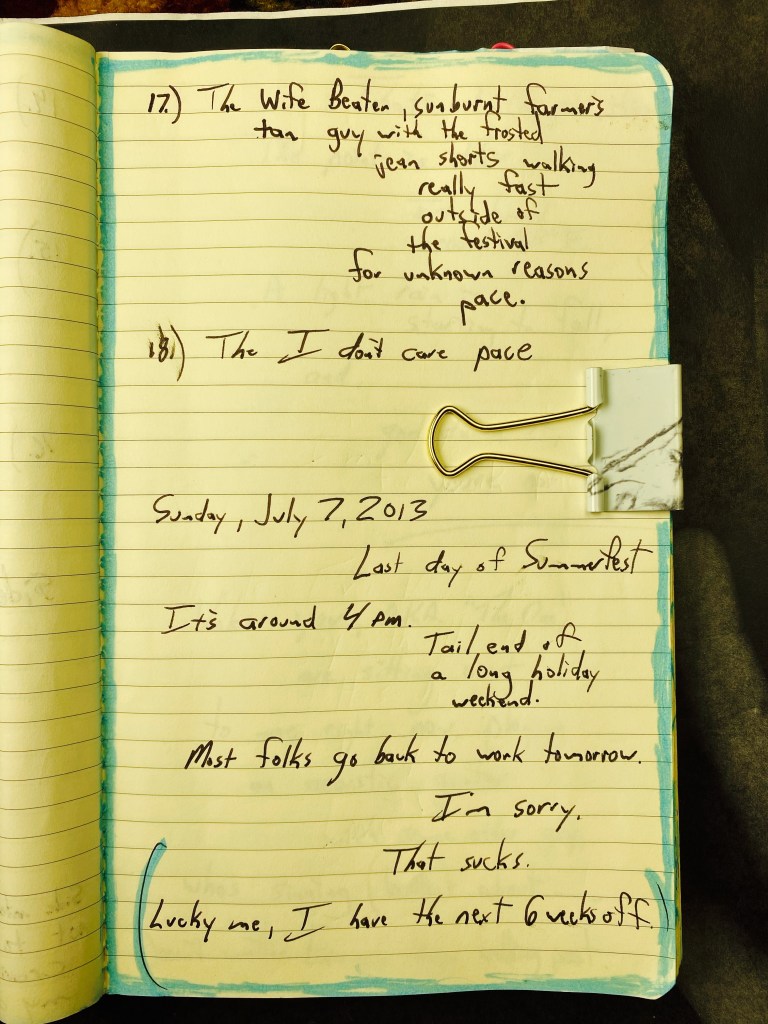 17.) The Wife Beater, sunburnt farmer's
tan guy with the frosted
jean shorts walking
really fast
outside of
the festival
for unknown reasons
pace.
18.) The I don't care pace
Sunday, July 7, 2013
Last day of Summerfest
It's around 4 pm.
Tail end of
a long holiday
weekend.
Most folks go back to work tomorrow.
I'm sorry.
That sucks.
(Lucky me, I have the next 6 weeks off.)